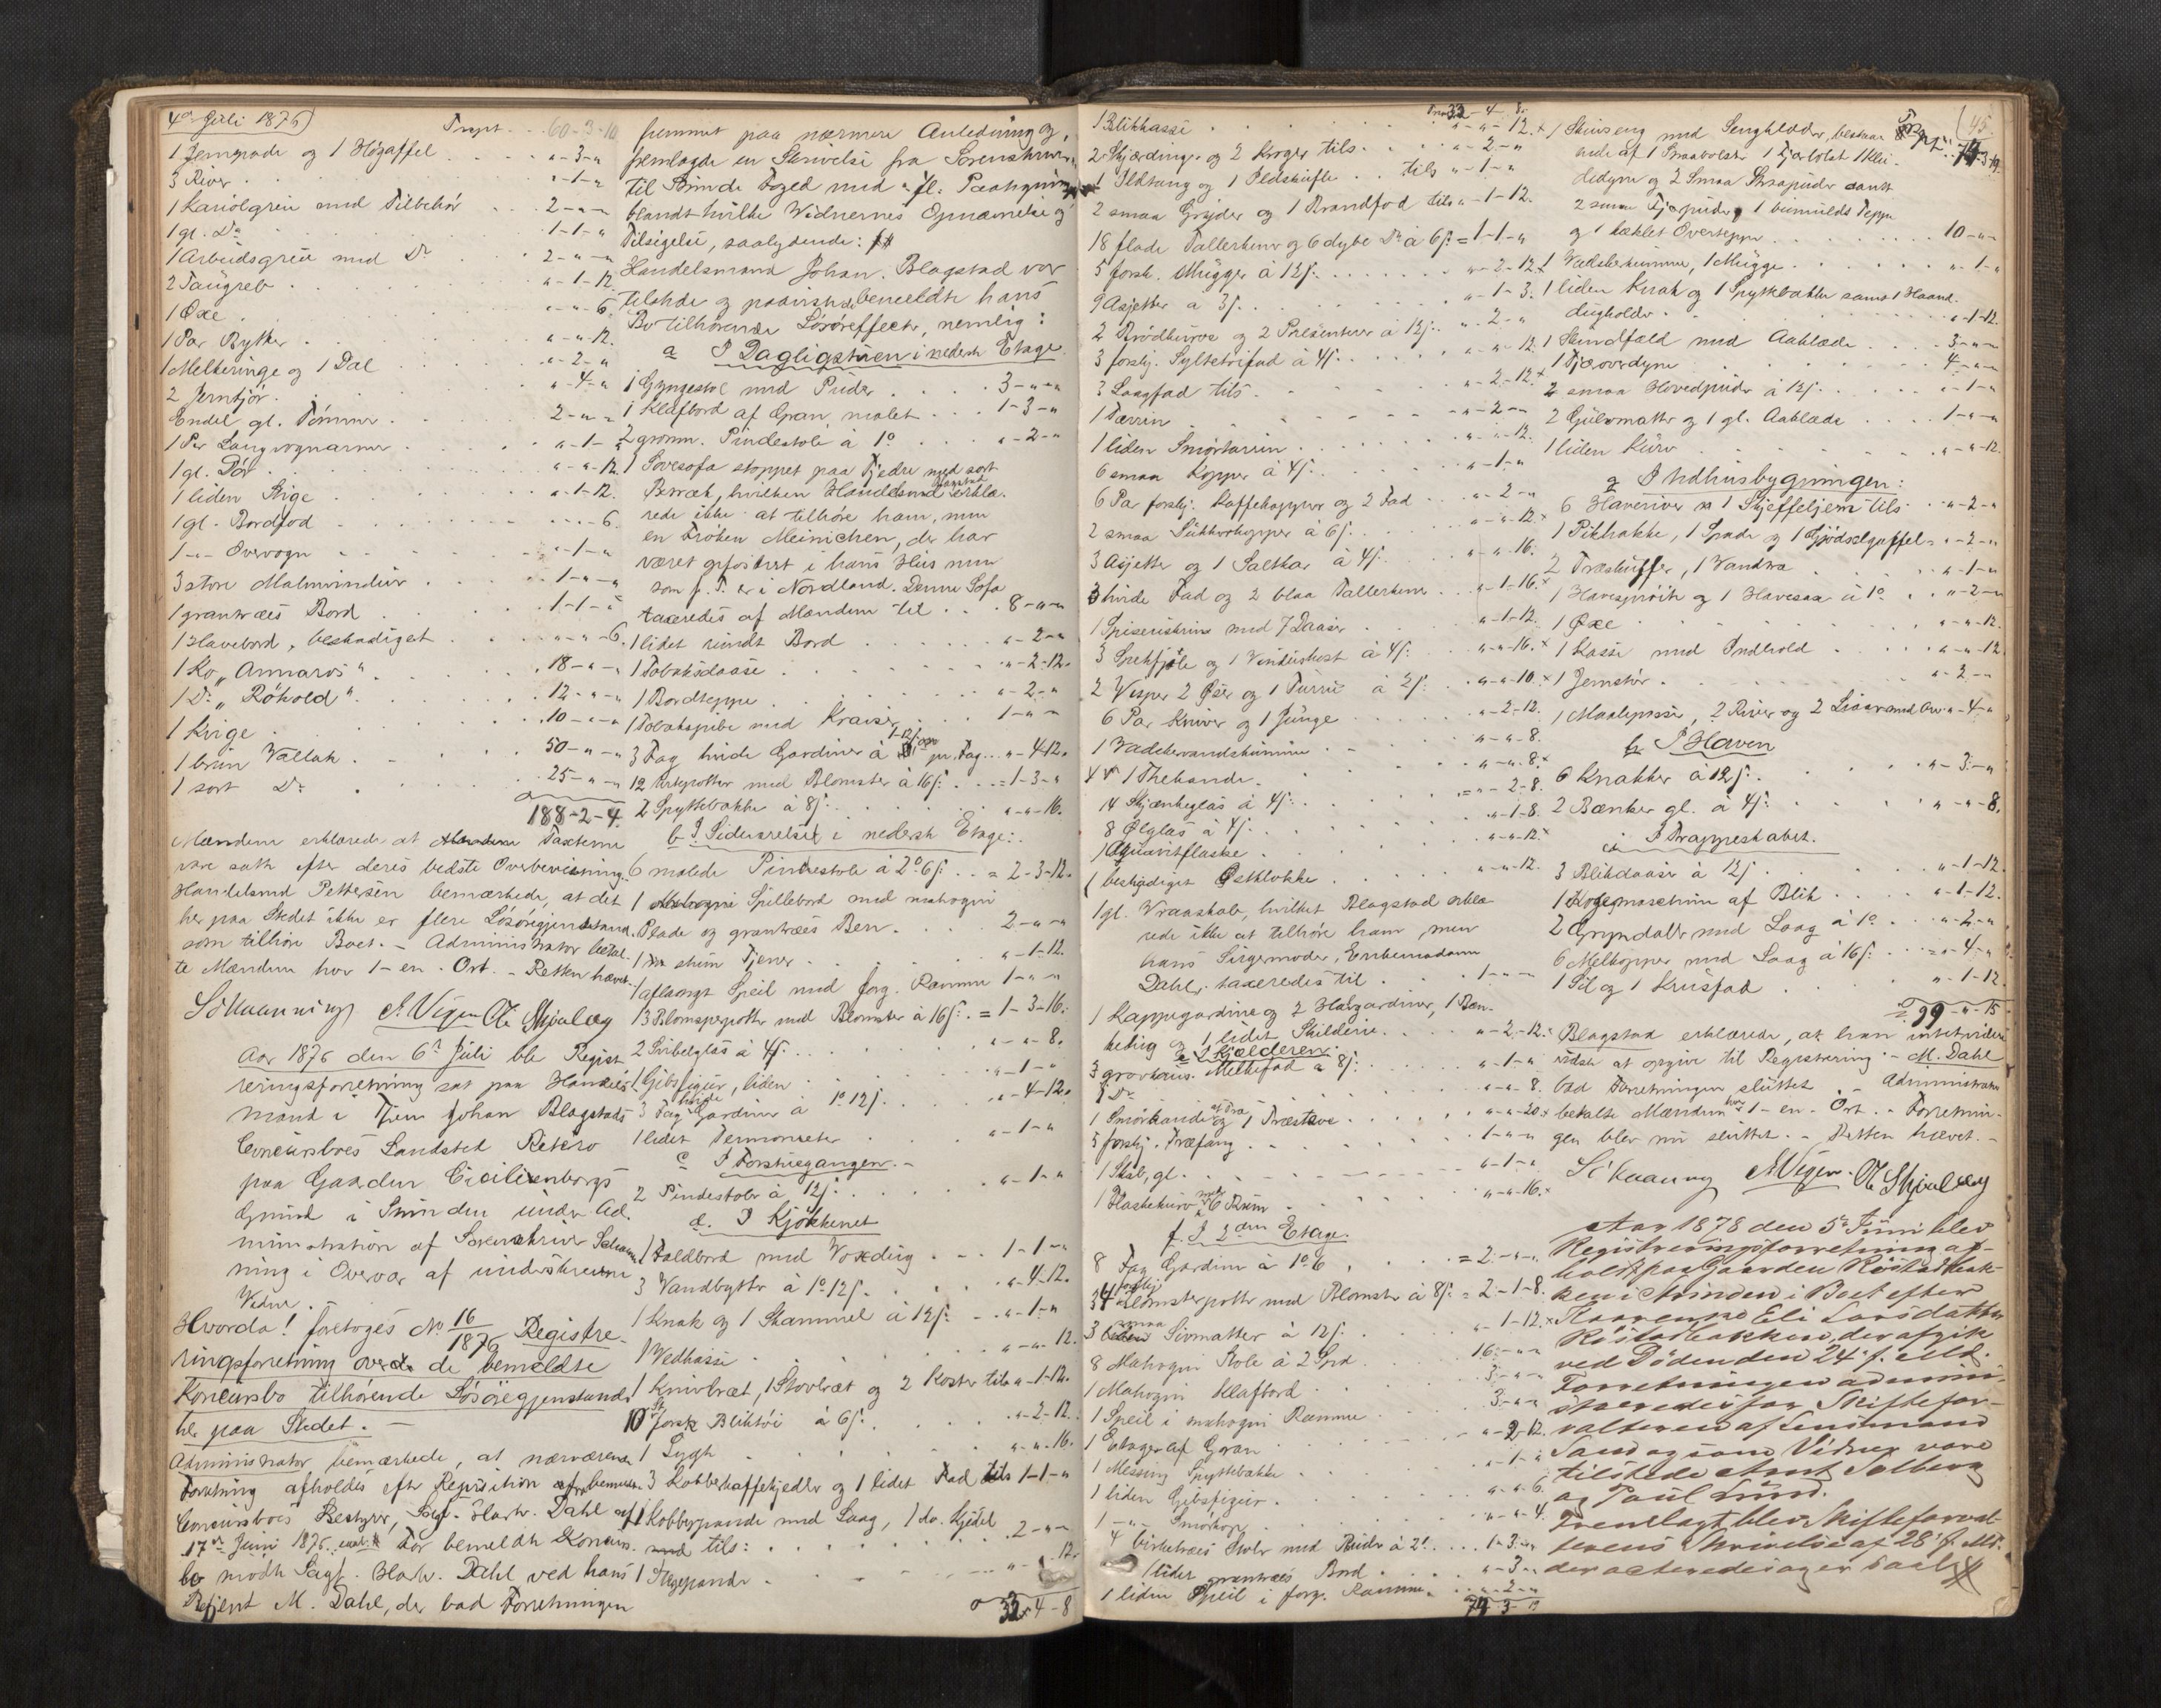 4de Juli 1876)
Trspt. . . 60-3-10
1 Jerngrade og 1 Høgaffel . . . . "-3-"
3 River . . . "-1-"
1 Kariolgreie med Tilbehør . . . 2-"-"
1 gl. Do . . . 1-1-"
1 Arbeidsgreie med Do . . . 2-"-"
2 Taugreb . . . "-1-12.
1 Øxe . . . "-"-6.
1 Par Rytker . . . "-"-12.
1 Melkeringe og 1 Dal . . . "-2-"
2 Jerntjør . . . "-4-"
Endel gl. Tømmer . . . 2-"-"
1 Par Langvognarmer . . . "-1-"
1 gl. Dør . . . "-"-12.
1 liden Stige . . . "-1-12.
1 gl. Bordfod . . . "-"-6.
1 -"- Overvogn . . . "-1-"
3 store Malmvinduer . . . 1-"-"
1 grantræes Bord . . . 1-1-"
1 Havebord, beskadiget . . . "-"-6.
1 Ko "Annaros" . . . 18-"-"
1 Do "Røkold" . . . 12-"-"
1 Kvige . . . 10-"-"
1 brun Vallak . . . 50-"-"
1 sort Do . . . 25-"-"
188-2-4.
Mændene erklærede at Taxterne
vare satte efter deres bedste Overbevisning.
Handelsmd Pettersen bemærkede, at det
her paa Stedet ikke er flere Løsøregjenstand.
som tilhøre Boet. - Administrator betal-
te Mændene hver 1 - en - Ort. - Retten hævet.
S. Kaaning E. Vigen Ole Skjrelley
Aar 1876 den 6te Juli ble Regist
reringsforretning sat paa Handels
mand i Tjen Johan Blegstads
Concursboes Landsted Retiro
paa Gaarden Cicilienborgs
Grund i Strinden under Ad.
ministration af Sorenskriver
ning i Overvær af underskrevne
Vidner. -
Hvorda! foretoges No 16/1876 Registre-
ringsforretning over de bemeldte
Koncursbo tilhørende Løsøregjenstande
her paa Stedet. -
Administrator bemærkede, at nærværende
Forretning afholdes efter Reqvisition af bemeldte
Concursboes Bestyrer, Sagf. Harw. Dahl af
17de Juni 1876. For bemeldte Koncurs.
bo mødte Sagf. Harw. Dahl ved hans
Refient M. Dahl, der bad Forretningen
fremmet paa nærmere Anledning og
fremlagde en Skrivelse fra Sorenskriver
til Strinde Foged med fl. Paategning
blandt hvilke Vidnernes Opnævnelse og
Tilsigelse, saalydende: #
Handelsmand Johan Blegstad var
tilstede og paaviste bemeldte hans
Bo tilhørende Løsøreffecter, nemlig:
a I Dagligstuen i nederste Etage.
1 Gyngestol med Puder . . . 3-"-"
1 Klafbord af Gran, malet . . . 1-3-"
2 grønn. Pindestole à 1o . . . "-2-"
1 Sovesofa stoppet paa Fjedre med sort
Betræk, hvilken Handelsmd Blegstad erklæ-
rede ikke at tilhøre ham, men
en Frøken Meinichen, der har
været opfostret i hans Huus men
som p. T. er i Nordland. Denne Sofa
taxeredes af Mændene til . . . 8-"-"
1 lidet rundt Bord . . . "-2-"
1 Tobaksdaase . . . "-2-12.
1 Bordteppe . . . "-2-"
1 Tobakspibe med Kraiser . . . 1-"-"
3 Fag hvide Gardiner à pr. Fag . . . "-4-12.
12 Urtepotter med Blomster à 16 s. . . = 1-3-"
2 Spyttebakke à 8 s. . . . "-"-16.
b. I Sideværelset i nederste Etage:
6 malede Pindestole à 2o 6 s. . . = 2-3-12.
1 Spillebord med mahogni
Plade og grantræes Ben . . . 2-"-"
1 stum Tjener . . . "-1-12.
1 aflangt Speil med forg. Ramme 1-"-"
13 Blomsterpotter med Blomster à 16 s. . = 1-3-16.
2 Svibelglas à 4 s. . . . "-"-8.
1 Gibsfigur, liden . . . "-1-"
3 Fag hvide Gardiner à 1o 12 s. . . "-4-12.
1 lidet Termometer . . . "-1-"
c I Forstuegangen. -
2 Pindestole à 12 s. . . . "-1-"
d. I Kjøkkenet
1 Foldbord med Voxdug . . . 1-1-"
3 Vandbøtter à 1o 12 s. . . . "-4-12.
1 Knak og 1 Skammel à 12 s. . . "-1-"
1 Vedkasse . . . "-"-12.
1 Knivbræt, 1 Stovbræt og 2 Koster tils "-1-12.
10 St. forsk Bliktøi à 6 s. . . . "-2-12.
1 Lygte . . . "-"-16.
3 Kobberkaffekjedler og 1 lidet Fad tils 1-1-"
1 Kobberpande med Laag, 1 do. Kjedel
tils: . . . 2-"-"
1 Stegepande . . . "-"-12.
32-4-8
Trspt 32-4-8.
1 Blikkasse . . . "-"-12.
2 Skjæringer og 2 Kroger tils . . . "-2-"
1 Ildtang og 1 Ildskuffe . . tils "-1-"
2 smaa Gryder og 1 Brandfod tils "-1-12.
18 flade Tallerkener og 6 dybe Do à 6 s. = 1-1-"
5 forsk. Mugger à 12 s. . . . "-2-12.
9 Asjetter a 3 s. . . . "-1-3.
2 Brødkurve og 2 Presenterer à 12 s. . "-2-"
3 forskj. Syltetrifad à 4 s. . . . "-"-12.
3 Laagfad tils . . . "-2-12.
1 Terrin . . . "-2-"
1 liden Smørterrin . . . "-"-12.
6 smaa Kopper à 4 s. . . . "-1-"
6 Par forskj. Kaffekopper og 2 Fad . . . "-2-"
2 smaa Sukkerkopper à 6 s. . . . "-"-12.
3 Asjetter og 1 Saltkar à 4 s. . . "-"-16.
3 hvide Fad og 2 blaa Tallerkener . . "-1-16.
1 Spiseriskrin med 7 Daaser . . . "-1-12.
3 Spekfjøle og 1 Vinduskost à 4 s. . "-"-16.
2 Visper 2 Øser og 1 Turru à 2 s. . . "-"-10.
6 Par Kniver og 1 Junge . . . "-2-12.
1 Vadskevandskumme . . . "-"-8.
1 Thekande . . . "-"-8.
14 Skjænkeglas à 4 s. . . . = "-2-8.
8 Ølglas à 4 s. . . . "-1-8.
1 Aquavitflaske . . . "-"-12.
1 beskadiget Ostklokke . . . "-"-12.
1 gl. Vraaskab, hvilket Blegstad erklæ
rede ikke at tilhøre ham men
hans Svigermoder, Enkemadame
Dahl, taxeredes til . . . 1-"-"
1 Kappegardine og 2 Halvgardiner, 1 Bæn-
kedug og 1 lidet Skilderie . . . "-2-12.
e I Kjælderen.
3 grovtøis Melkefad a 8 s. . . "-1-"
1 Do . . . "-"-8.
1 Smørkande af Træ og 1 Træstave . . . "-"-20.
5 forskj. Træfang . . . 1-"-"
1 Skab, gl. . . . "-1-"
1 Flaskekurv med 6 Rum . . . "-"-16.
f. I 2den Etage.
8 Fag Gardin à 1o 6 . . . = 2-"-"
34 forskj Blomsterpotter med Blomster à 8 s. = 2-1-8.
3 smaa Sivmatter à 12 s. . . . "-1-12.
8 Mahogni Stole à 2 Spd . . . 16-"-"
1 Mahogni Klafbord . . . 3-"-"
1 Speil i mahogni Ramme . . . 3-"-"
1 Etager af Gran . . . "-2-12.
1 Messing Spyttebakke . . . "-1-"
1 liden Gibsfigur . . . "-"-6.
1 -"- Smørkop . . . "-"-4.
4 birketræes Stole med Puder à 2o . . . 1-3-"
1 lidet grantræes Bord . . . "-3-"
1 liden Speil i forg. Ramme . . . "-2-"
74-3-19
(45.
Trspt. 74-3-19.
1 Skinseng med Sengklæder, bestaa
ende af 1 Straabolster 1 Fjærbolst 1 Klæ-
dedyne og 2 Smaa Straapuder samt
2 smaa Fjærpuder, 1 bomulds Teppe
og 1 hæklet Overteppe . . . 10-"-"
1 Vadskekumme, 1 Mugge . . . "-1-"
1 liden Knak og 1 Spyttbakke samt 1 Haand.
dugholder . . . "-1-12.
1 Skindfæld med Aaklæde . . . 3-"-"
1 Fjæroverdyne . . . 4-"-"
2 smaa Hovedpuder à 12 s. . . . "-1-"
2 Gulvmatter og 1 gl. Aaklæde . . . 1-"-"
1 liden Kurv . . . "-"-12.
g I Udhusbygningen:
6 Haveriver 1 Skjeffeljern tils . . "-2-"
1 Pikhakke, 1 Spade og 1 Gjødselgaffel = "-2-"
2 Træskuffer, 1 Vandvæ . . "-1-"
1 Havesprøite og 1 Havesax à 1o . . "-2-"
1 Øxe . . . "-"-12.
1 Kasse med Indhold . . . "-"-12
1 Jernstør . . . "-2-"
1 Maalepasser, 2 River og 2 Ljaaer med Orv "-4-"
h. I Haven
6 Knakker à 12 s. . . . "-3-"
2 Bænker gl. à 4 s. . . . "-"-8.
i I Trappeskabet.
3 Blikdaaser à 12 s. . . . "-1-12.
1 Kogemaschine af Blik . . . "-1-12.
2 Gryndaller med Laag à 1o . . "-2-"
6 Melkopper med Laag à 16 s. . . = "-4-"
1 Sil og 1 Krusfad . . . "-1-12
99-"-15
Blegstad erklærede, at han intet videre
vidste at opgive til Registrering. - M. Dahl
bad Forretningen sluttet. - Administrator
betalte Mændene hver 1 - en - Ort. - Forretnin-
gen blev nu sluttet. - Retten hævet. -
S. Kaaning E. Vigen. Ole Skjrelley
Aar 1878 den 5te Juni blev
Registreringsforretning af-
holdt paa Gaarden Røstadbak-
ken i Strinden i Boet efter
Eli Larsdatter
Røstadbakken, der afgik
ved Døden den 24de f. Md.
Forretningen admini-
streredes for Skiftefor-
valteren af Lensmand
Saxe og som Vidner vare
tilstede Arnt Solberg
og Paul Lund.
Fremlagt blev Skifteforval-
terens Skrivelse af 28de f. Md.
der acteredes og er saal. #